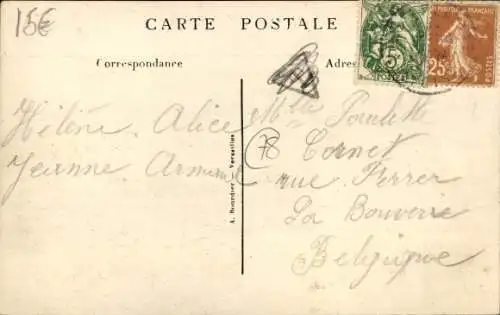 15€
CARTE POSTALE
Correspondance
Adres
5c
POSTES
RÉPUBLIQUE FRANÇAISE
25c
POSTES
Hélène Alice
Jeanne Armand
A. Bourdier Versailles
Mlle Paulette
78
Cornet
rue Ferrer
La Bouverie
Belgique